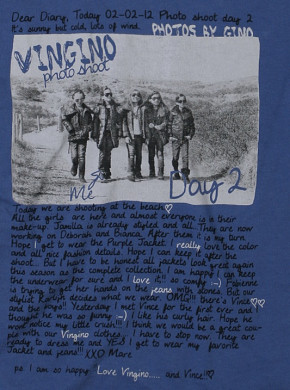 Dear Diary, Today 02-02-12 Photo shoot day 2
It's sunny but cold, lots of wind. PHOTOS BY GINO
VINGINO
photo shoot
Me
Day 2
Today we are shooting at the beach♡
All the girls are here and almost everyone is in their
make-up. Jamilla is already styled and all. They are now
working on Deborah and Bianca. After them it is my turn.
Hope I get to wear the Purple Jacket. I really love the color
and all nice fashion details. Hope I can keep it after the
shoot. But I have to be honest all jackets look great again
this season as the complete collection. I am happy I can keep
the underwear for sure and I love it!! so comfy :-) Fabienne
is trying to get her hands on the jeans with stones. But our
stylist Karlijn decides what we wear. OMG!!! there's Vince♡
and the boys!! Yesterday I met Vince for the first ever and I
thought he was so funny :-) I like his curly hair. Hope he
wont notice my little crush!!! I think we would be a great cou-
ple with our Vingino clothes.... I have to stop now. They are
ready to dress me and YES I get to wear my favorite
Jacket and jeans!!! XXO Mare
ps I am so happy Love Vingino..... and Vince!!♡